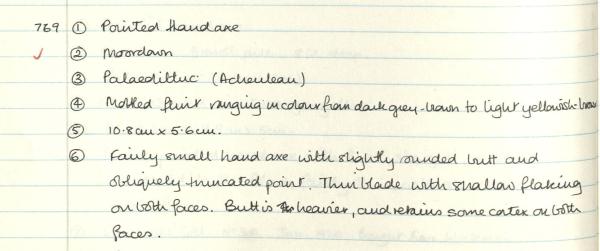 769 ① Pointed Handaxe
✓ ② Moordown
③ Palaeolithic (Acheulean)
④ Mottled flint ranging in colour from dark grey-brown to light yellowish-brown
⑤ 10.8cm x 5.6cm.
⑥ Fairly small hand axe with slightly rounded butt and
obliquely truncated point. Thin blade with shallow flaking
on both faces. Butt is heavier, and retains some cortex on both
faces.